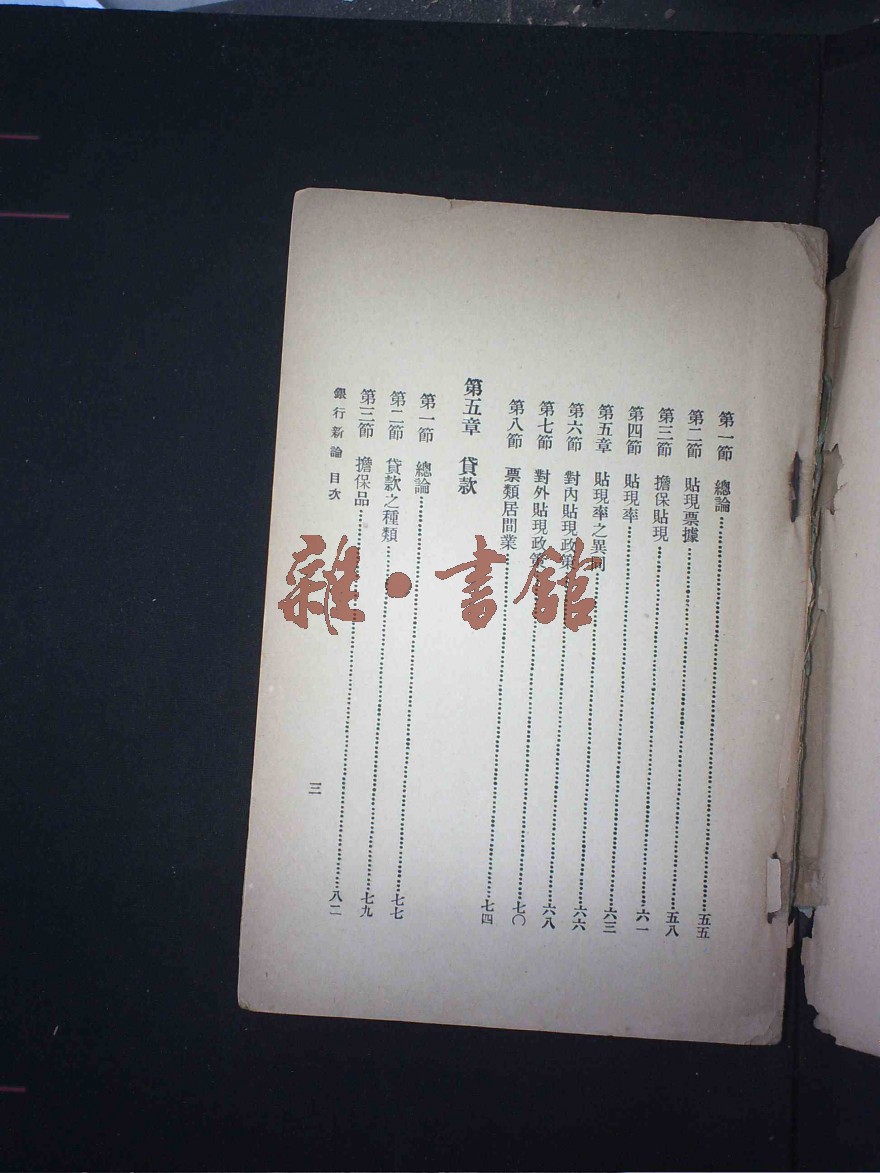 第一節 總論……五五
第二節 貼現票據……五八
第三節 擔保貼現……六一
第四節 貼現率……六三
第五章 貼現率之異同……六六
第六節 對內貼現政策……六八
第七節 對外貼現政策……七〇
第八節 票類居間業……七四
第五章 貸款
第一節 總論……七七
第二節 貸款之種類……七九
第三節 擔保品……八二
銀行新論 目次
三
雜·書館